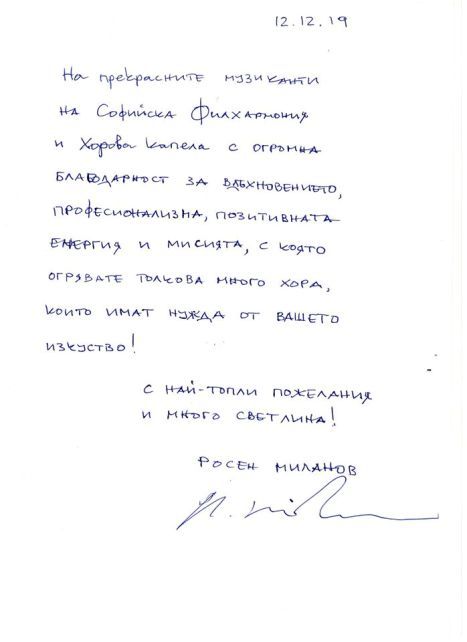 12.12.19
На прекрасните музиканти
на Софийска Филхармония
и Хорова капела с огромна
благодарност за вдъхновението,
професионализма, позитивната
енергия и мисията, с която
огрявате толкова много хора,
които имат нужда от вашето
изкуство!
с най-топли пожелания
и много светлина!
Росен Миланов